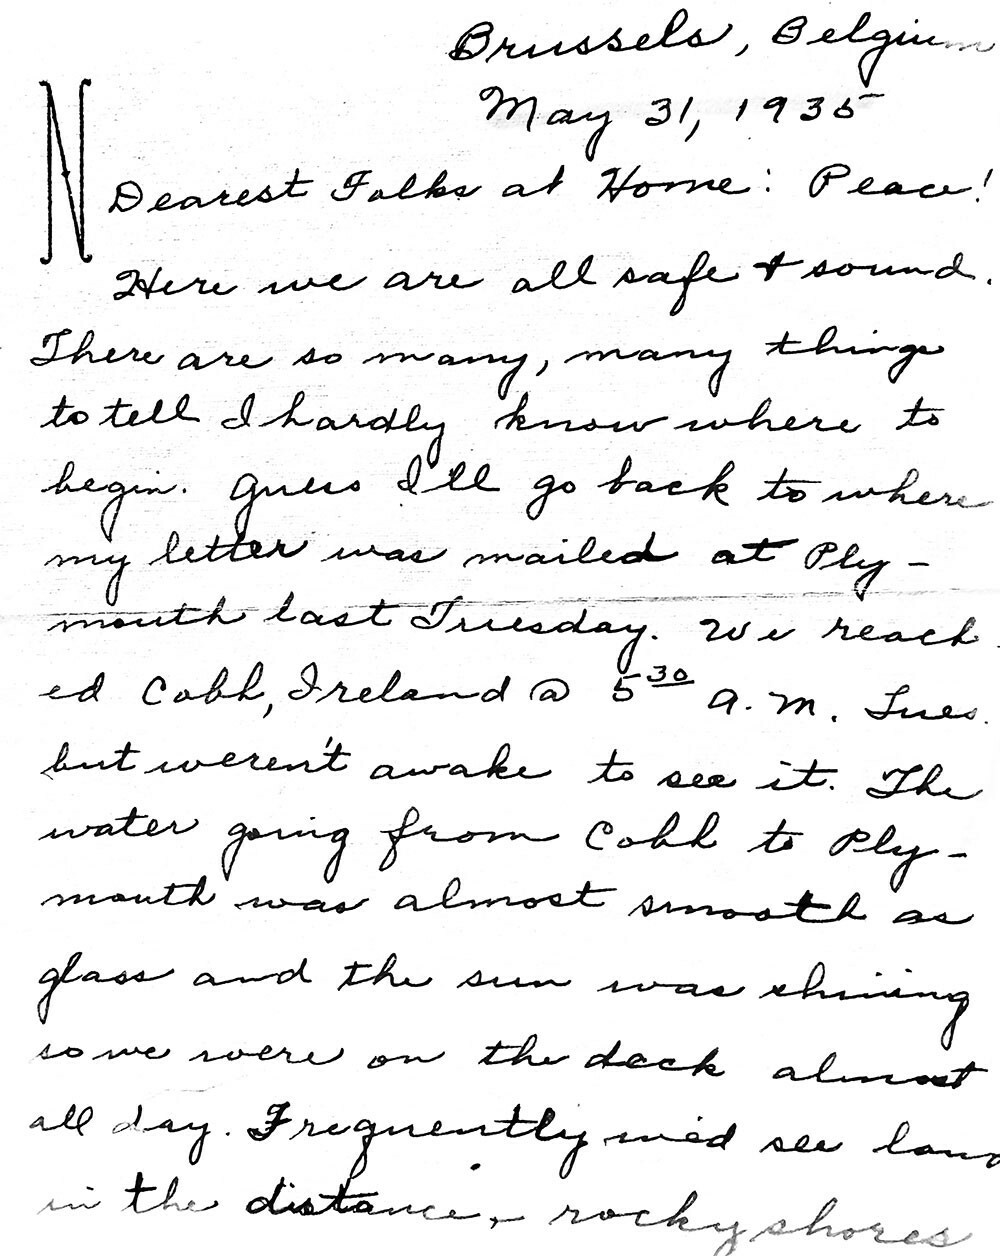 Brussels, Belgium
May 31, 1935
N
Dearest Folks at Home: Peace!
Here we are all safe & sound.
There are so many, many things
to tell I hardly know where to
begin. Guess I'll go back to where
my letter was mailed at Ply-
mouth last Tuesday. We reach-
ed Cobh, Ireland @ 5 30 A.M. Tues.
but weren't awake to see it. The
water going from Cobh to Ply-
mouth was almost smooth as
glass and the sun was shining
so we were on the deck almost
all day. Frequently we'd see land
in the distance, - rocky shores